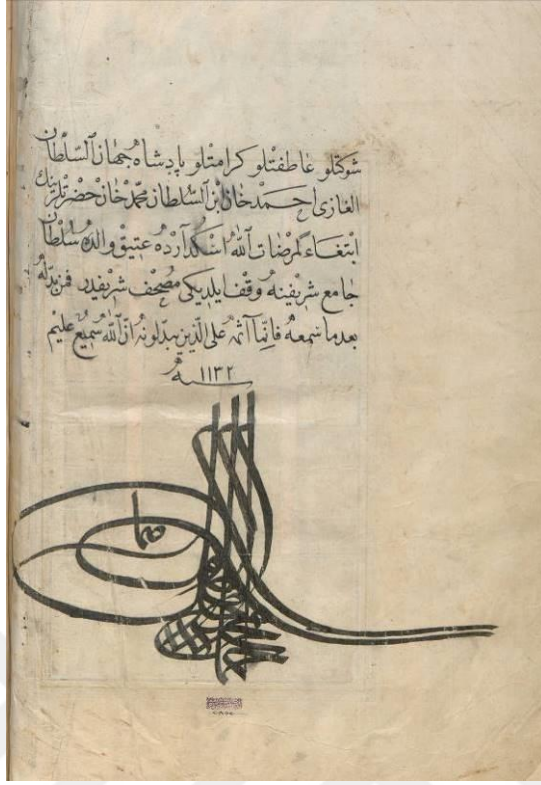 شوكتلو عاطفتلو كرامتلو پادشاه جهان السلطان
الغازى احمد خان ابن السلطان محمد خان حضرتلرينك
ابتغاء لمرضات الله اسكدارده عتيق والده سلطان
جامع شريفنه وقف ايلديكى مصحف شريفدر فمن بدله
بعدما سمعه فانما اثمه على الذين يبدلونه ان الله سميع عليم
سنه ١١٣٢